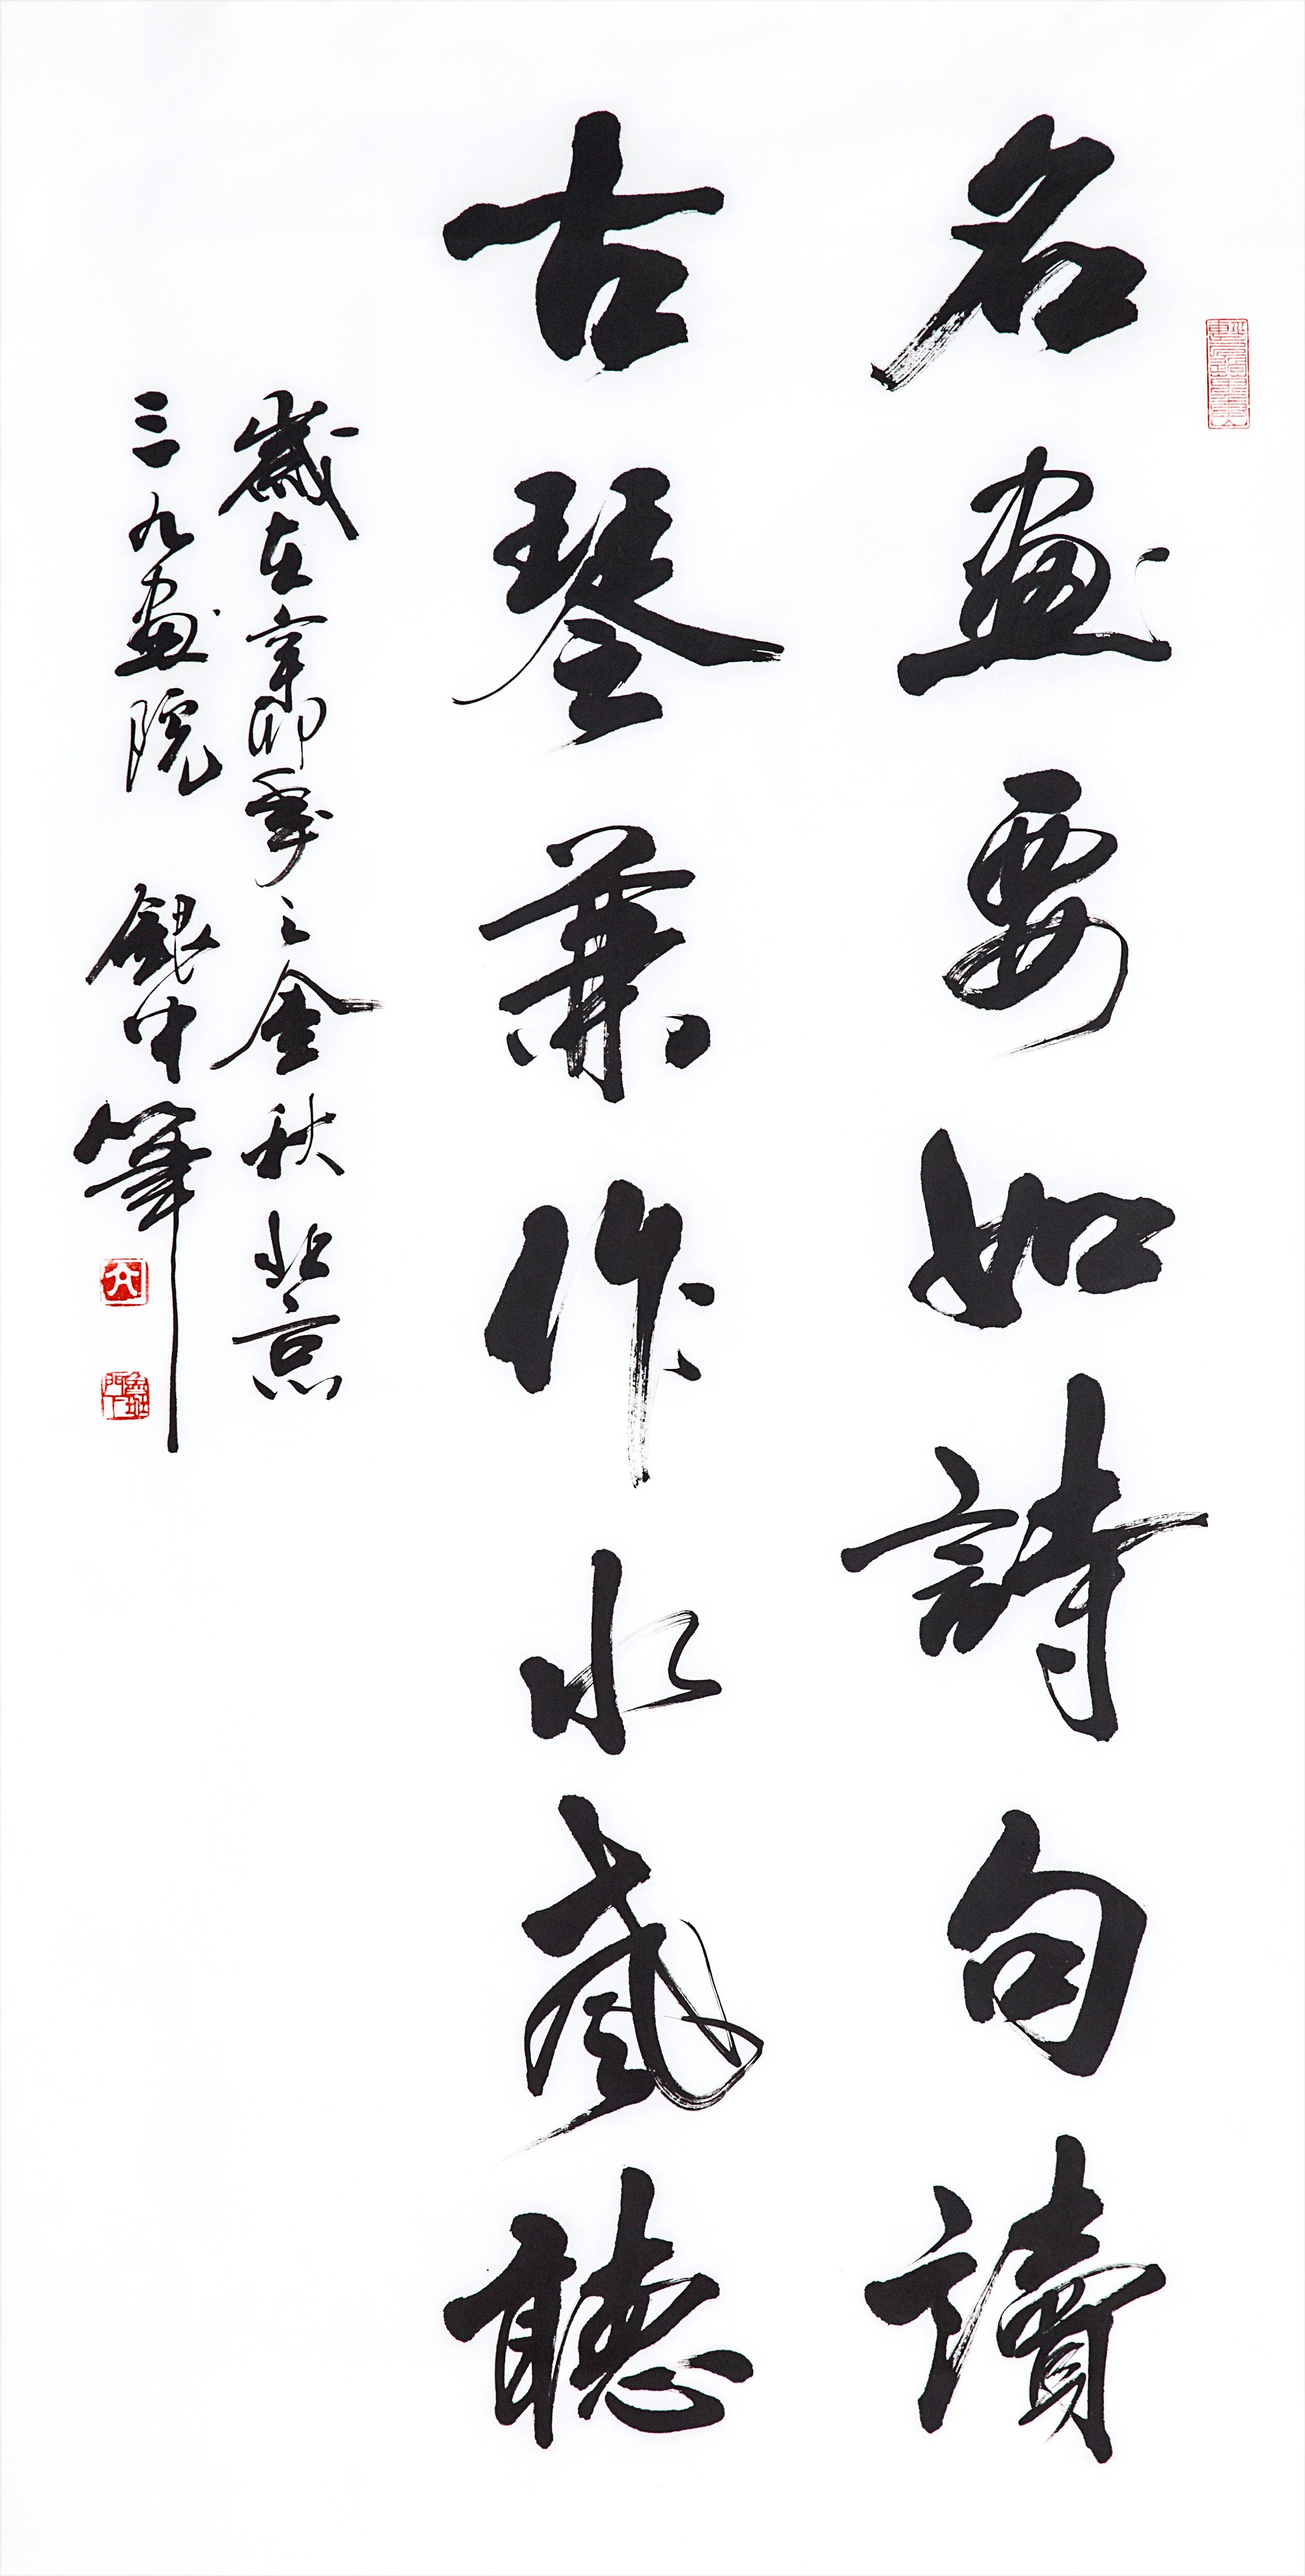 名畫要如詩句讀
古琴兼作水聲聽
歲在辛卯年之金秋北京
三九畫院 銀中筆
魯班門下